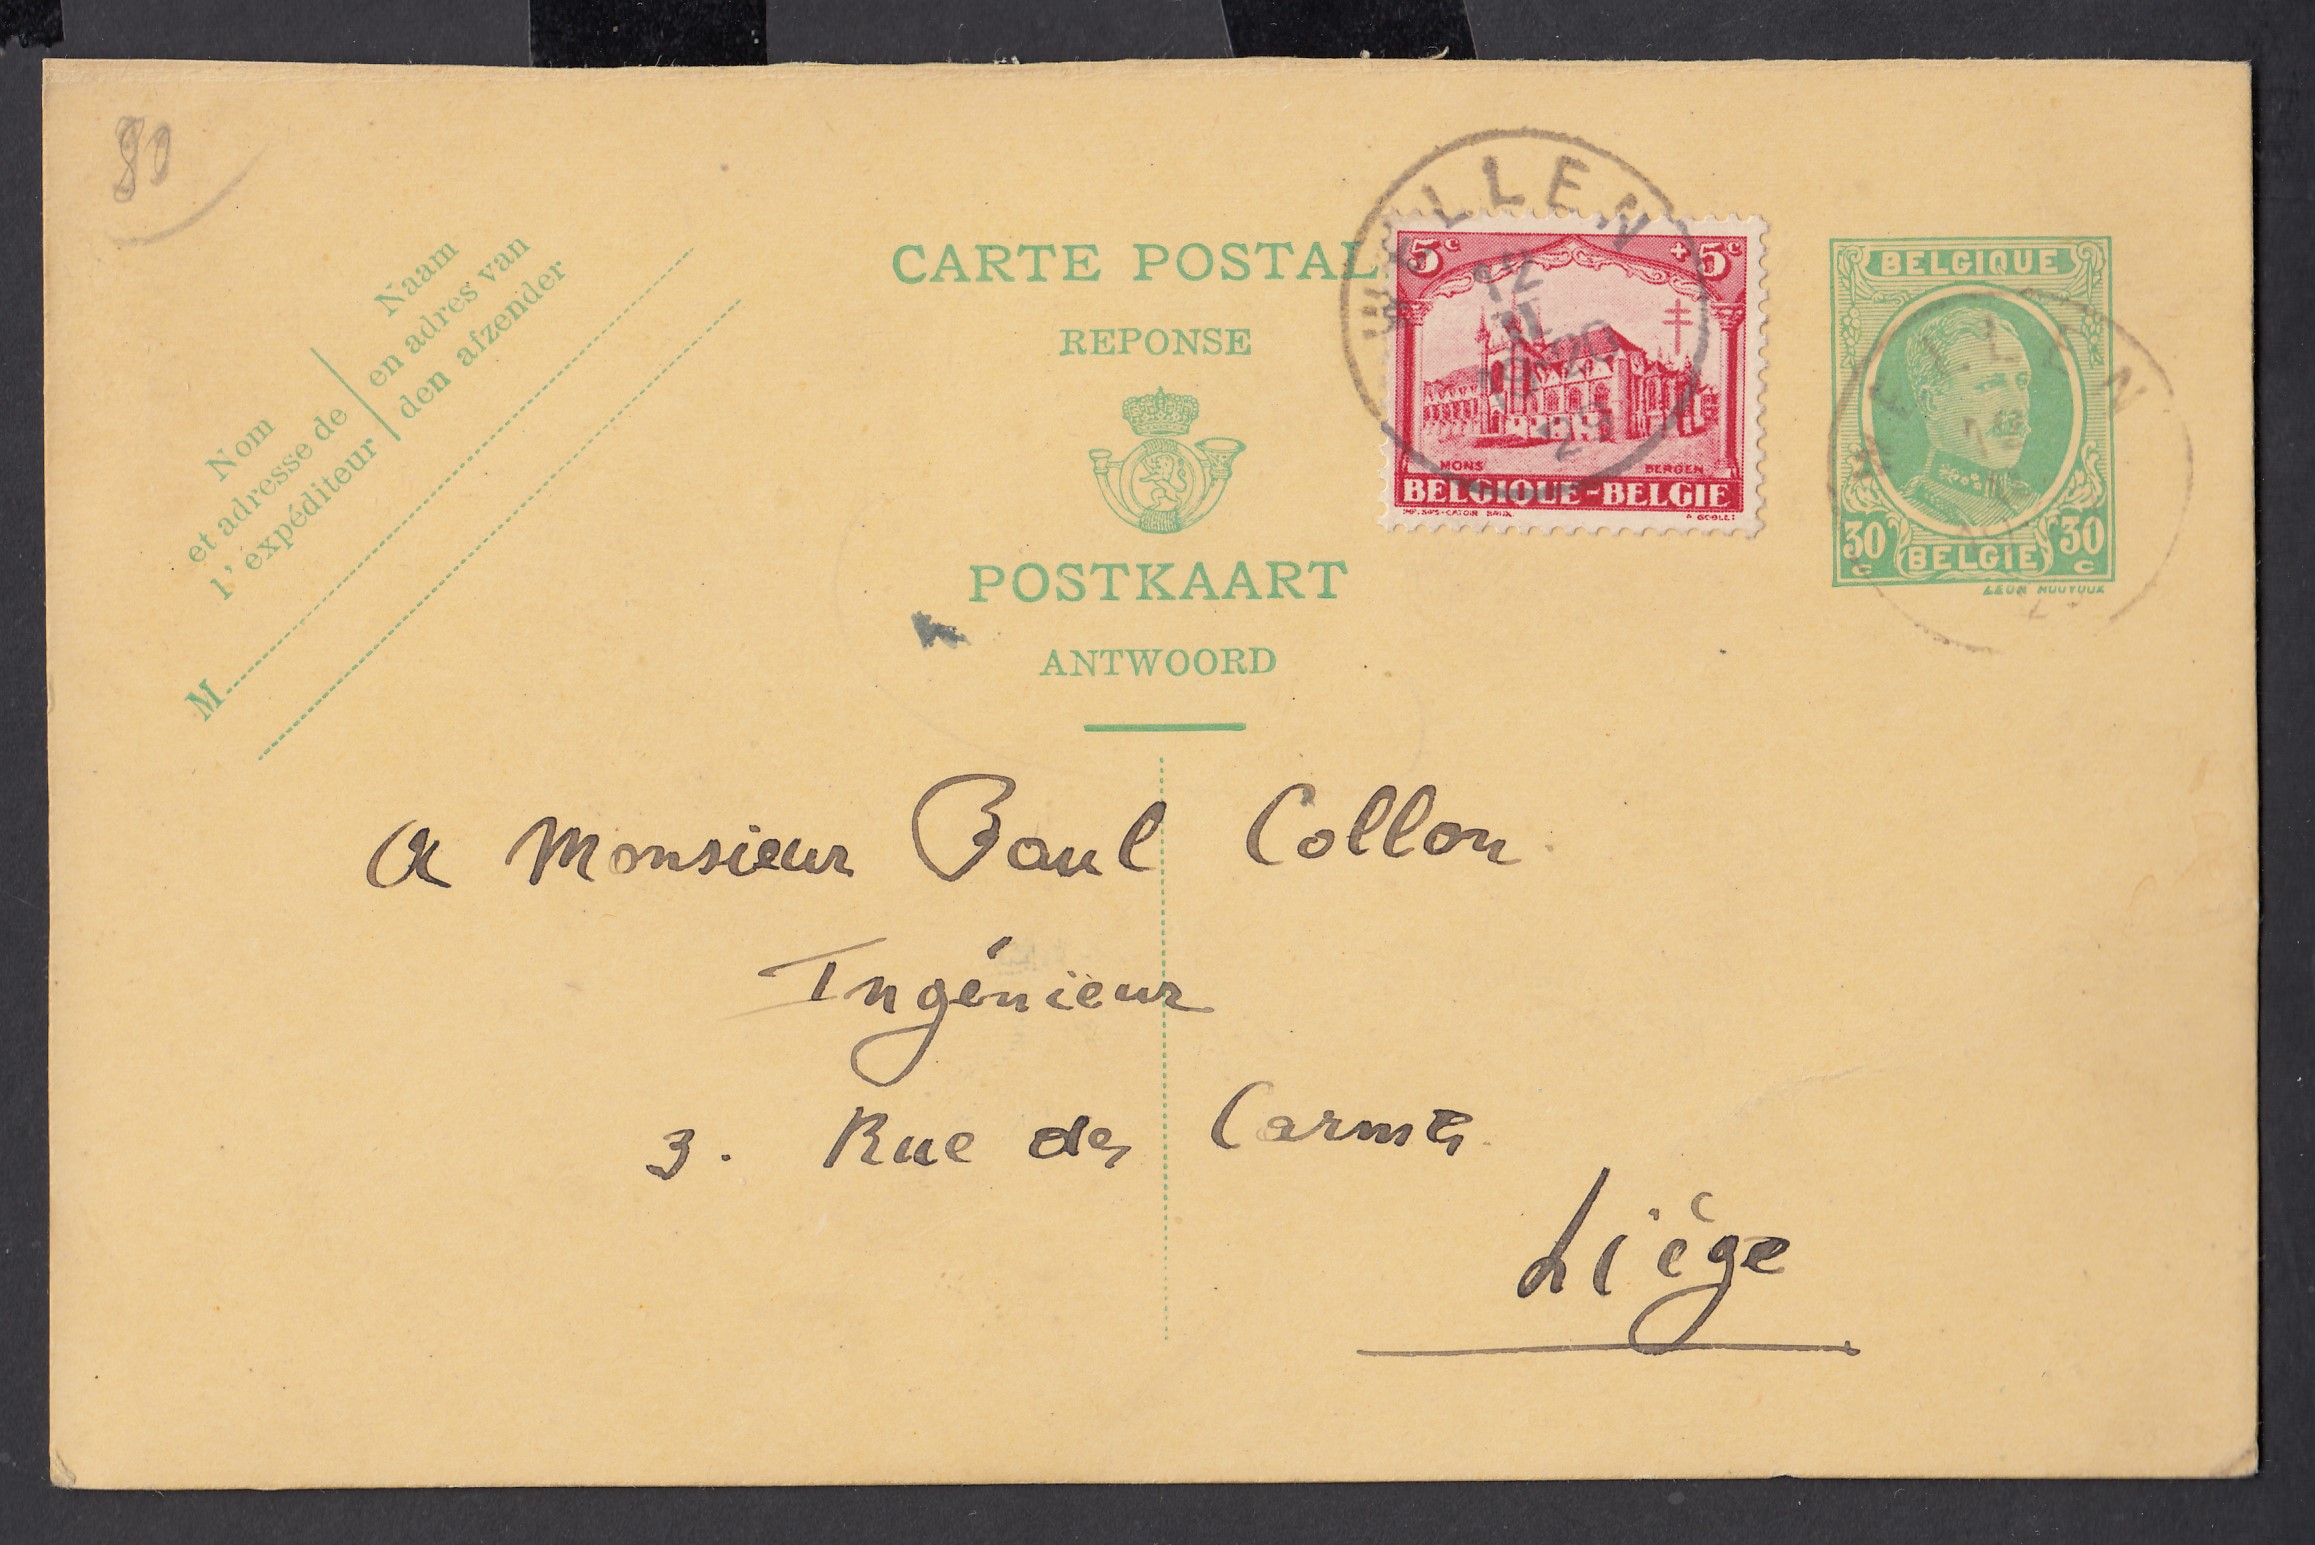 80
Naam
en adres van
den afzender
Nom
et adresse de
l'expéditeur
M
CARTE POSTAL
REPONSE
POSTKAART
ANTWOORD
WELLEN
12
29
5c +5c
MONS BERGEN
BELGIQUE-BELGIE
BELGIQUE
WELLEN
30 c BELGIE 30 c
A Monsieur Paul Collon
Ingénieur
3. Rue des Carmes
Liége